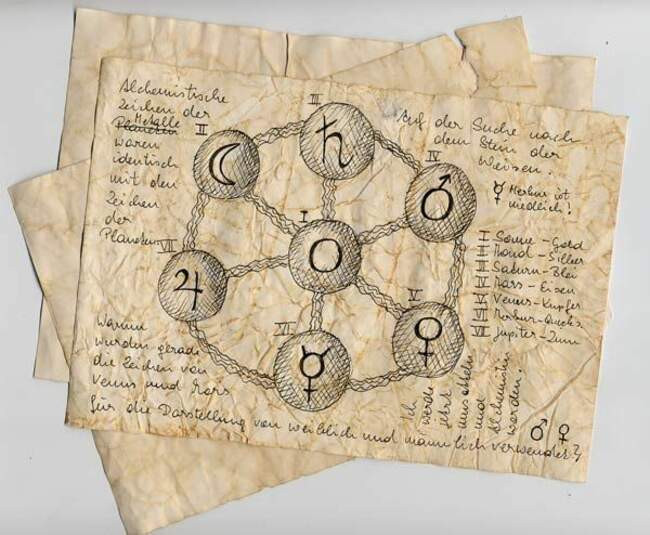 Alchemistische
Zeichen der
Metalle
Planeten
waren
identisch
mit den
Zeichen
der
Planeten
III
II
IV
I
VII
V
VI
Auf der Suche nach
dem Stein der
Weisen.
☿ Merkur ist
niedlich!
I Sonne - Gold
II Mond - Silber
III Saturn - Blei
IV Mars - Eisen
V Venus - Kupfer
VI Merkur - Quecks.
VII Jupiter - Zinn
Warum
wurden gerade
die Zeichen von
Venus und Mars
für die Darstellung von weiblich und männlich verwendet?
Ich
werde
jetzt
umsatteln
und
Alchemistin
werden!
♂ ♀